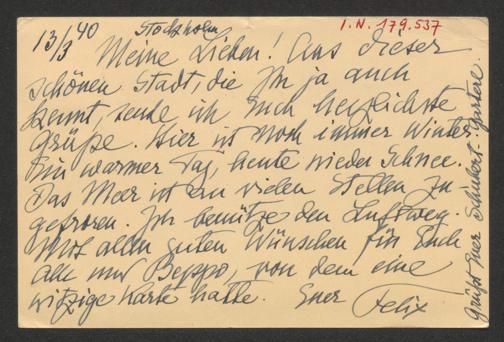 13/3 40 Stockholm
I.N. 179.537
Meine Lieben! Aus dieser
schönen Stadt, die Ihr ja auch
kennt, sende ich Euch herzlichste
Grüße. Hier ist noch immer Winter.
Ein warmer Tag, heute wieder Schnee.
Das Meer ist an vielen Stellen zu-
gefroren. Ich benütze den Luftweg.
Mit allen guten Wünschen für Euch
alle und Beppo, von dem eine
witzige Karte hatte. Euer Felix
Grüßt Euer Schubert-